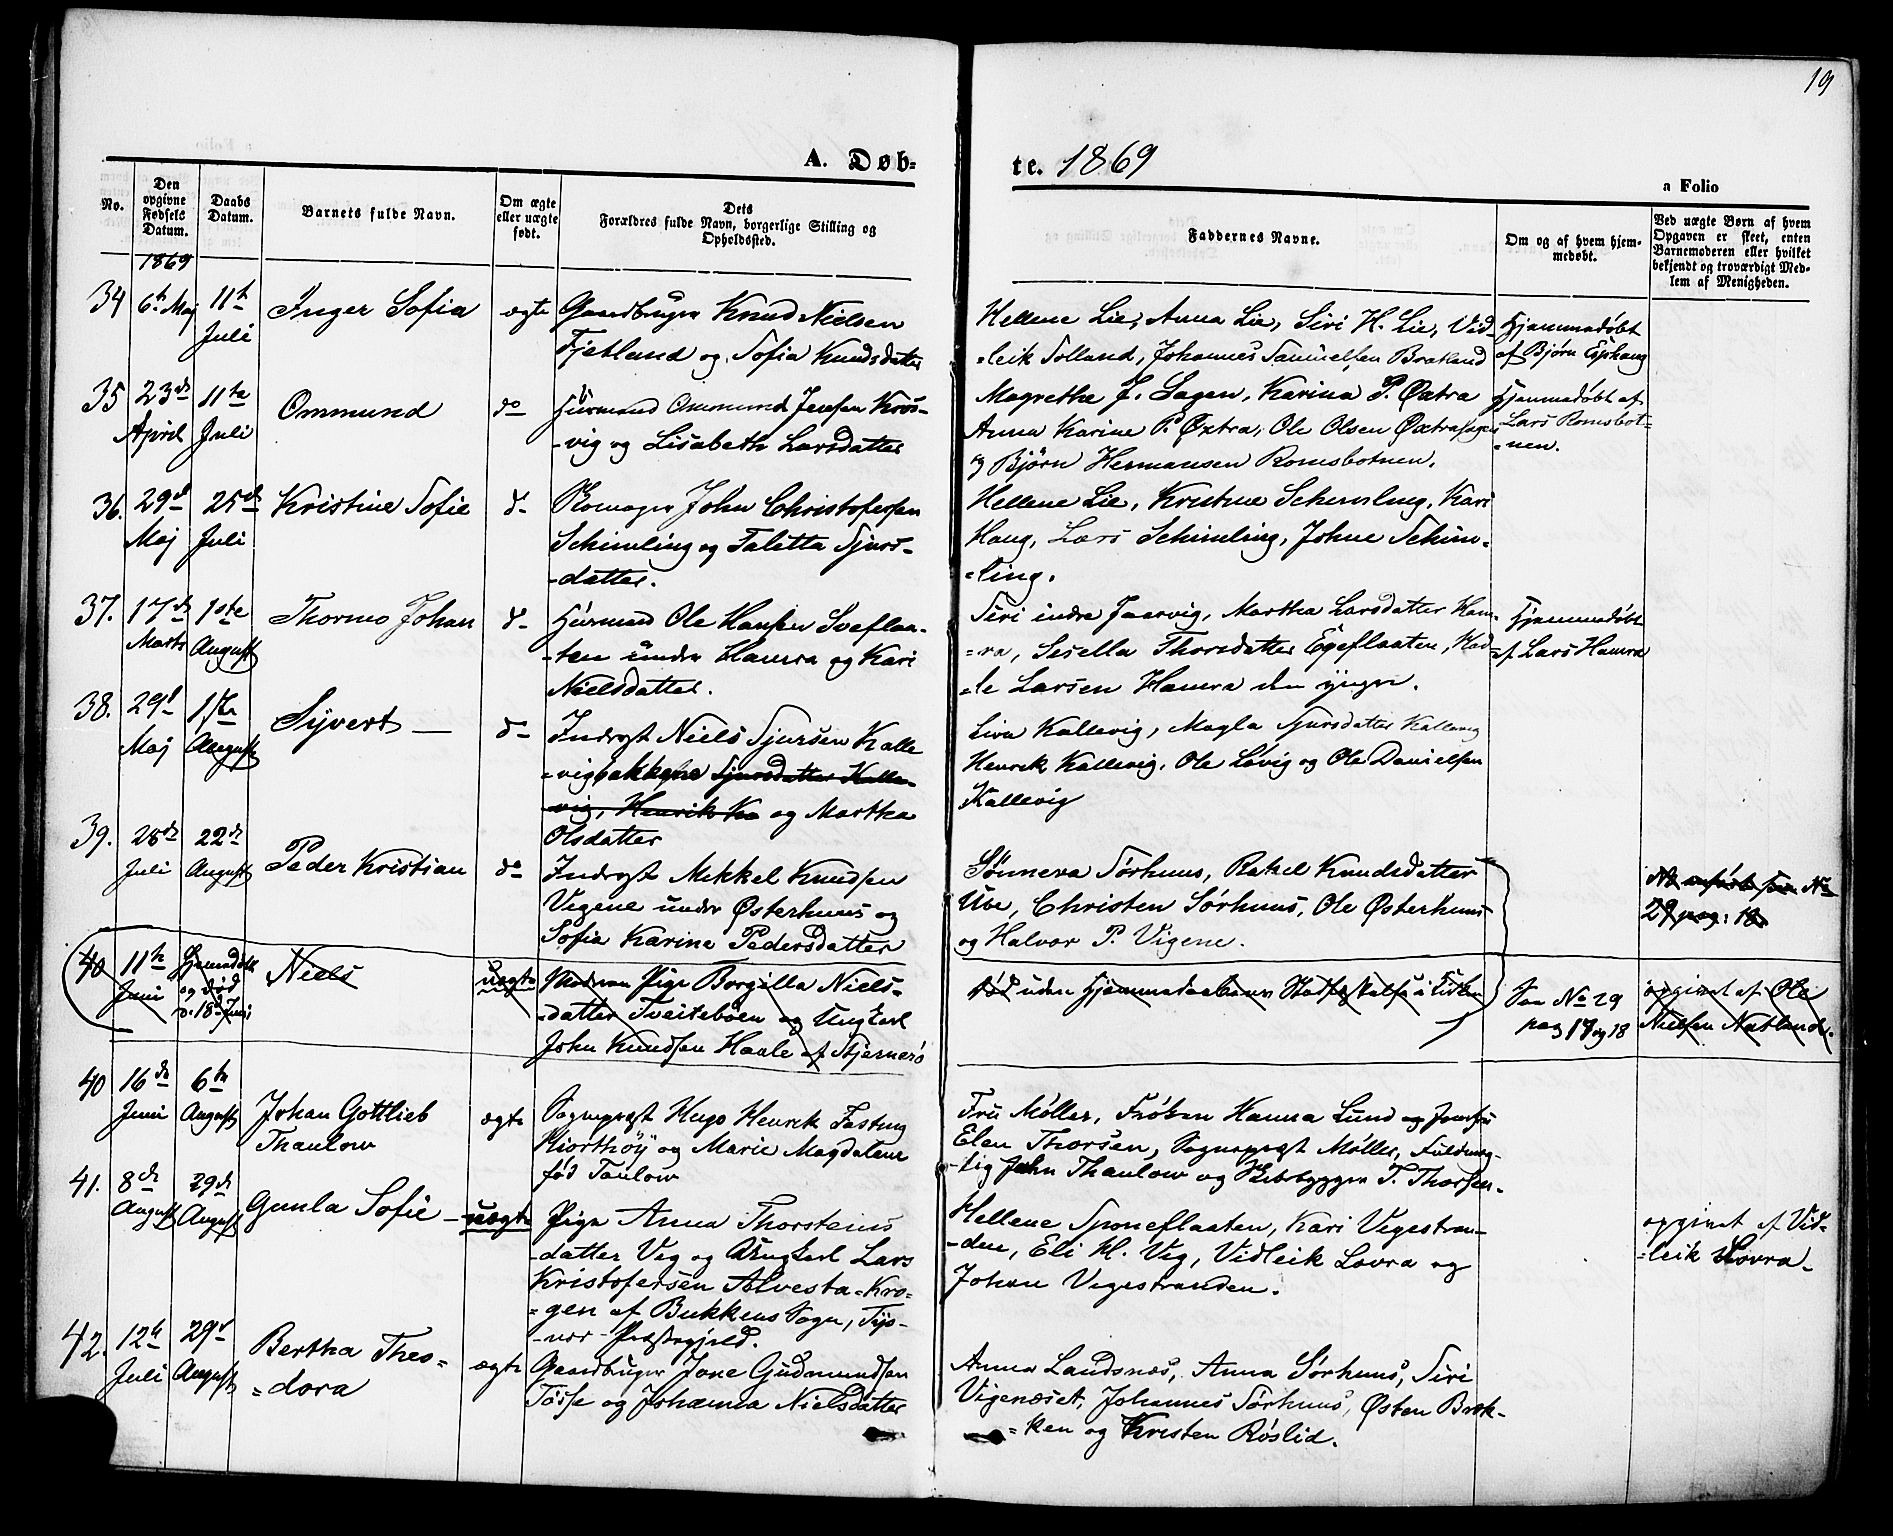 19
A. Døb-
te. 1869
a Folio
No.
Den opgivne Fødsels Datum.
Daabs Datum.
Barnets fulde Navn.
Om ægte eller uægte født.
Dets
Forældres fulde Navn, borgerlige Stilling og Opholdssted.
Faddernes Navne.
Om og af hvem hjem-
medøbt.
Ved uægte Børn af hvem
Opgaven er skeet, enten
Barnemoderen eller hvilket
bekjendt og troværdigt Med-
lem af Menigheden.
1869
34 6te Maj 11te Juli Inger Sofia ægte
Gaardbruger Knud Nielsen
Fjetland og Sofia Knudsdatter
Hellene Lie, Anna Lie, Siri H. Lie, Vid-
=leik Solland, Johannes Samuelsen Bratland
Hjemmedøbt
af Bjørn Esphaug
35 23de April 11te Juli Ommund do
Huusmand Ommund Jensen Kros-
-vig og Lisabeth Larsdatter
Magrethe J. Sagen, Karina P. Øxtra
Anna Karine P. Øxtra, Ole Olsen Øxtrasagen
og Bjørn Hermansen Romsbotnen.
Hjemmedøbt af
Lars Romsbot=
=nen.
36. 29d Maj 25de Juli Kristine Sofie d-
Skomager John Christofersen
Schimling og Talitta Sjurs-
-datter.
Hellene Lie, Kristine Schimling, Kari
Haug, Lars Schimling, Johne Schim-
-ling.
37. 17de Marts 1ste August Thormo Johan d-
Huusmand Ole Hansen Sveflaa-
-ten under Hamra og Kari
Nielsdatter.
Siri indre Jaarvig, Martha Larsdatter Ham-
=ra, Sesella Thorsdatter Egeflaaten, Had-
-le Larsen Hamra den yngre.
Hjemmedøbt
af Lars Hamra
38. 29d Maj 1ste August Syvert d-
Inderst Niels Sjursen Kalle
-vigbakkene Sjursdatter Kalle-
vig, Henrik Ka og Martha
Olsdatter
Siva Kallevig, Magla Sjursdatter Kallevig
Henrik Kallevig, Ole Løvig og Ole Danielsen
Kallevig
39. 28de Juli 22de August Peder Kristian do
Inderst Mekkel Knudsen
Vigene under Østerhuus og
Sofia Karine Pedersdatter
Sønneva Sørhuus, Rakel Knudsdatter
Ube, Christen Sørhuus, Ole Østerhuus
og Halvor P. Vigene.
NB anført No
29 pag: 18
40 11te Juni Hjemmedøbt
og død
d. 18de Juni Niels uægte
Moderen Pige Borgilla Niels-
-datter Tveiteboen og Ungkarl
John Knudsen Haale af Stjernerø
død uden Hjemmedaabens Stadfæstelse i Kirken
See No 29
pag 17 og 18
opgivet af Ole
Nielsen Natland.
40 16de Juni 6te August Johan Gottlieb
Thaulow ægte
Sognepræst Hugo Henrik Fasting
Hiorthøy og Marie Magdalene
fød Taulow
Fru Møller, Frøken Hanna Lund og Jomfru
Elen Thorsen, Sognepræst Møller, Fuldmæg-
-tig John Thaulow og Skibsbygger T. Thorsen.
41. 8de August 29de August Gunla Sofie uægte
Pige Anna Thorsteins
-datter Veg og Ungkarl Lars
Kristofersen Alvesta-Kro-
-gen af Bukkens Sogn, Tys-
-vær Præstegjeld.
Hellene Sponeflaaten, Kari Vegestran-
-den, Eli H. Veg, Vidleik Lovra og
Johan Vegestranden.
opgivet af Vid-
=leik Lovra.
42. 12te Juli 29d August Bertha Theo=
=dora ægte
Gaardbruger Jone Gudmundsen
Tøsse og Johanna Nielsdatter
Anna Landsnæs, Anna Sørhuus, Siri
Vigenæset, Johannes Sørhuus, Østen Bræk-
=ken og Kristen Røslid.